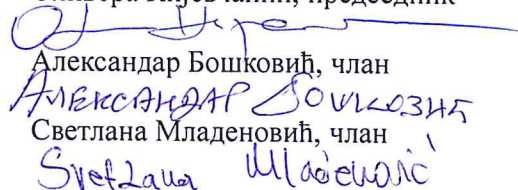 председник
Александар Бошковић, члан
АЛЕКСАНДАР
Светлана Младеновић, члан
Svetlana Mladenović